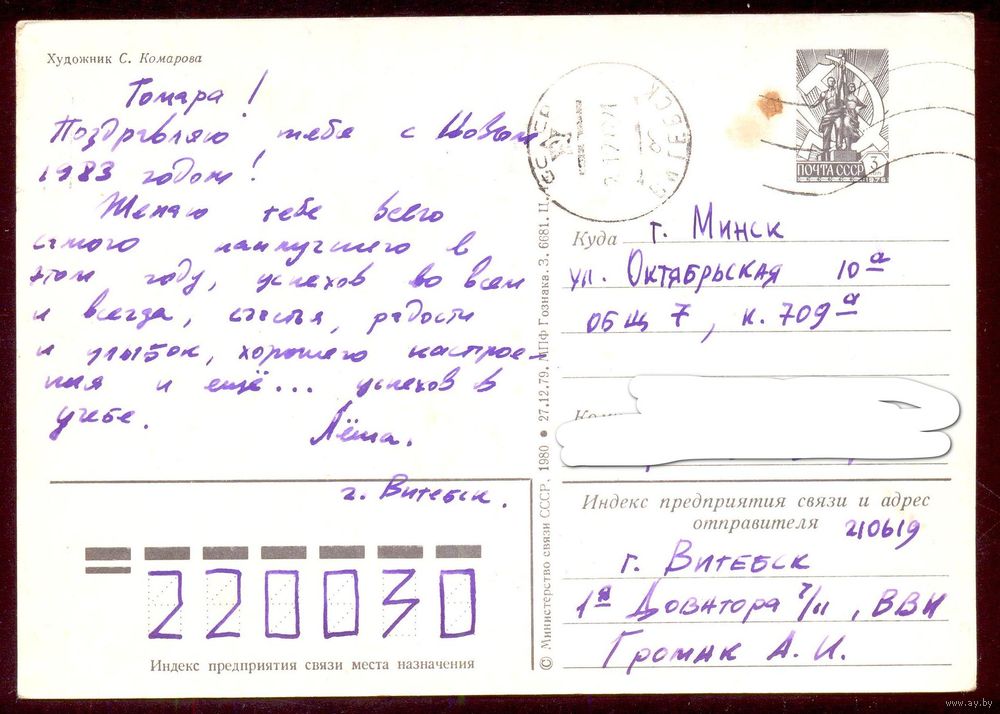 Художник С. Комарова
Томара!
Поздравляю тебя с Новым
1983 годом!
Желаю тебе всего
самого наилучшего в
этом году, успехов во всем
и всегда, счастья, радости
и улыбок, хорошего настрое-
ния и ещё... успехов в
учебе.
Лёша.
г. Витебск.
220030
Индекс предприятия связи места назначения
© Министерство связи СССР. 1980 • 27.12.79. МПФ Гознака. З. 6681. Ц.
ВИТЕБСК
ПОЧТА СССР
3
коп
1976
Куда г. Минск
ул. Октябрьская 10а
общ 7, к. 709а
Индекс предприятия связи и адрес
отправителя 210619
г. Витебск
1я Доватора 7/11, ВВИ
Громак А. И.
www.ay.by